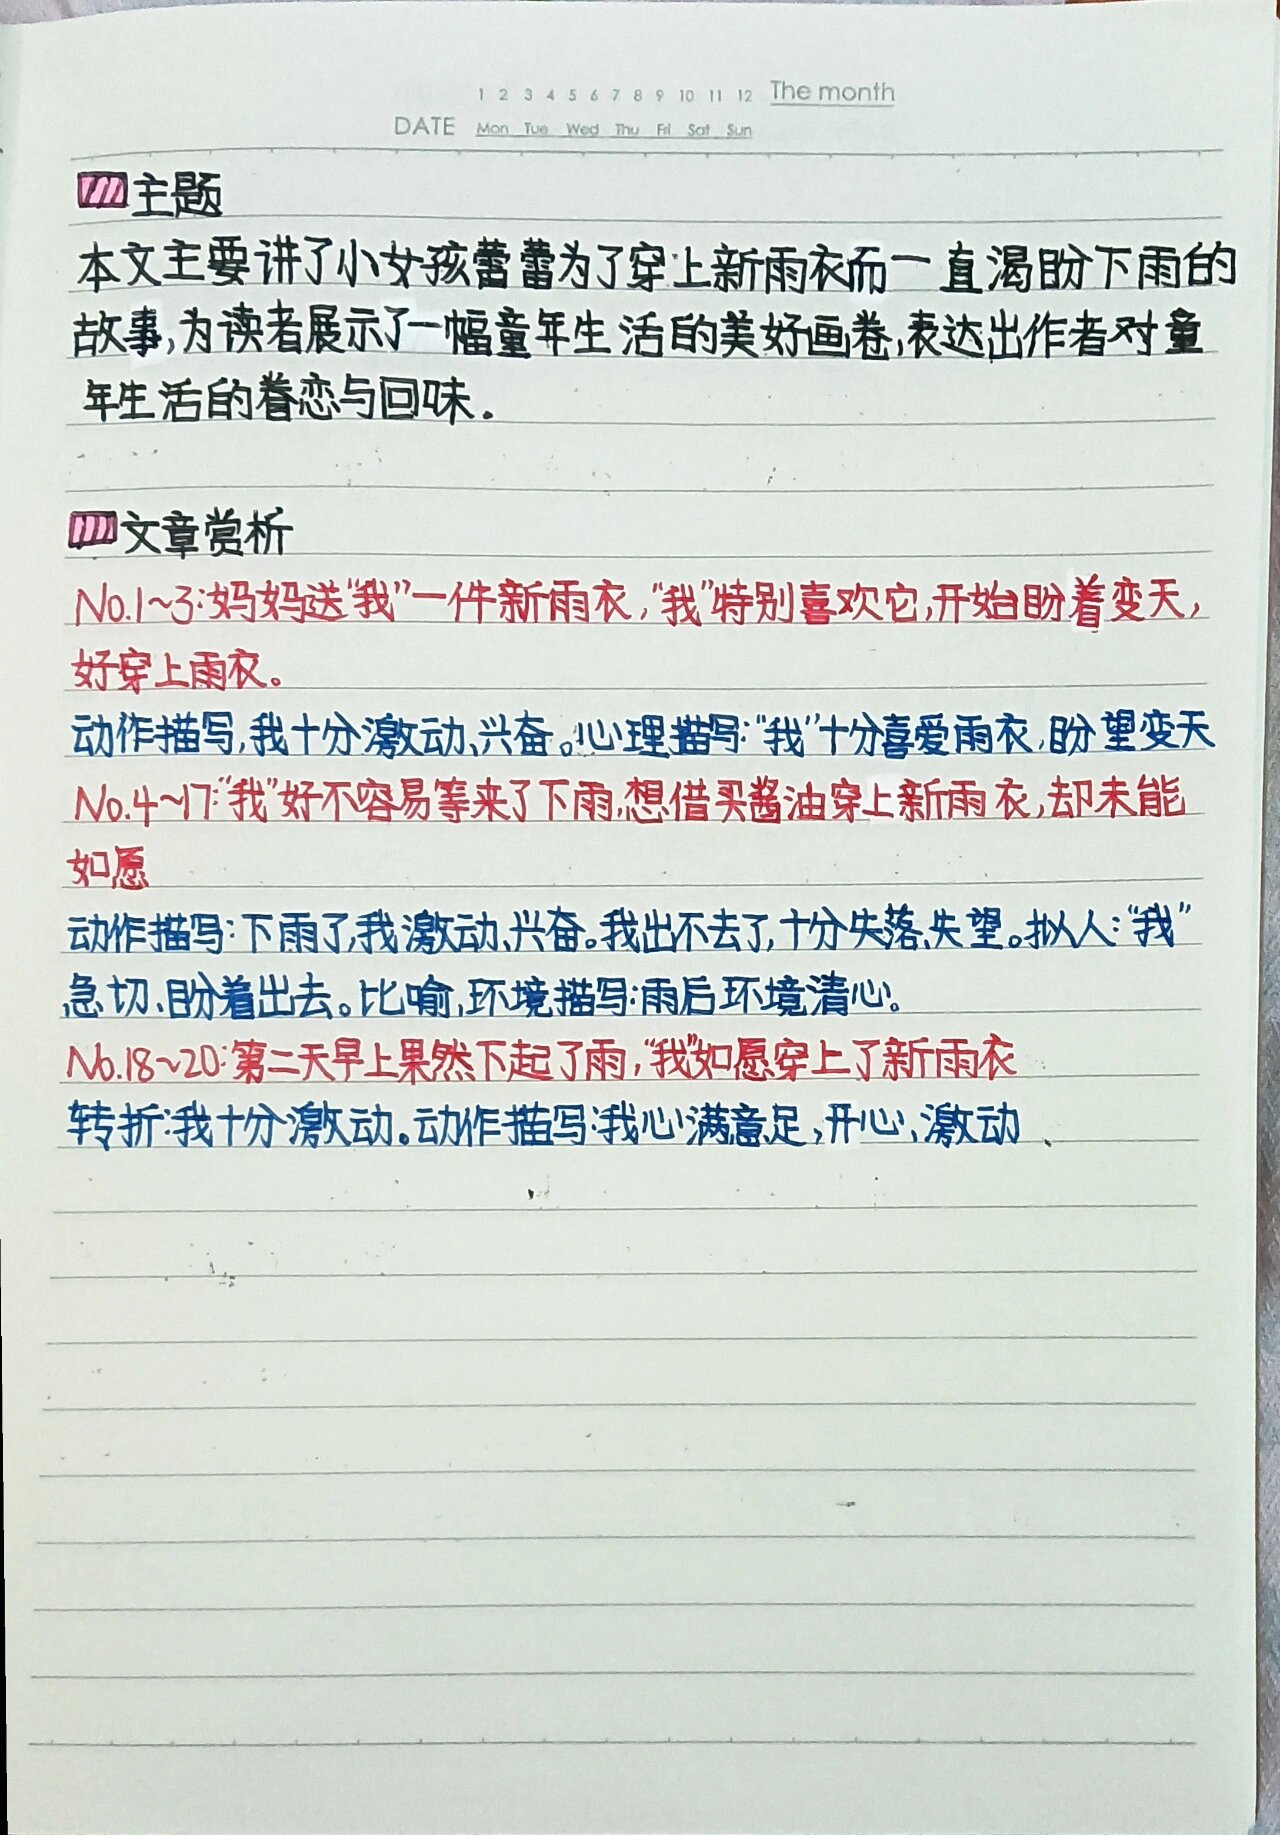 1 2 3 4 5 6 7 8 9 10 11 12 The month
DATE Mon Tue Wed Thu Fri Sat Sun
主题
本文主要讲了小女孩蕾蕾为了穿上新雨衣而一直渴盼下雨的
故事,为读者展示了一幅童年生活的美好画卷,表达出作者对童
年生活的眷恋与回味.
文章赏析
No.1~3:妈妈送“我”一件新雨衣,“我”特别喜欢它,开始盼着变天,
好穿上雨衣。
动作描写,我十分激动、兴奋。心理描写:“我”十分喜爱雨衣,盼望变天
No.4~17:“我”好不容易等来了下雨,想借买酱油穿上新雨衣,却未能
如愿
动作描写:下雨了,我激动、兴奋。我出不去了,十分失落、失望。拟人:“我”
急切、盼着出去。比喻,环境描写:雨后环境清心。
No.18~20:第二天早上果然下起了雨,“我”如愿穿上了新雨衣
转折:我十分激动。动作描写:我心满意足,开心、激动